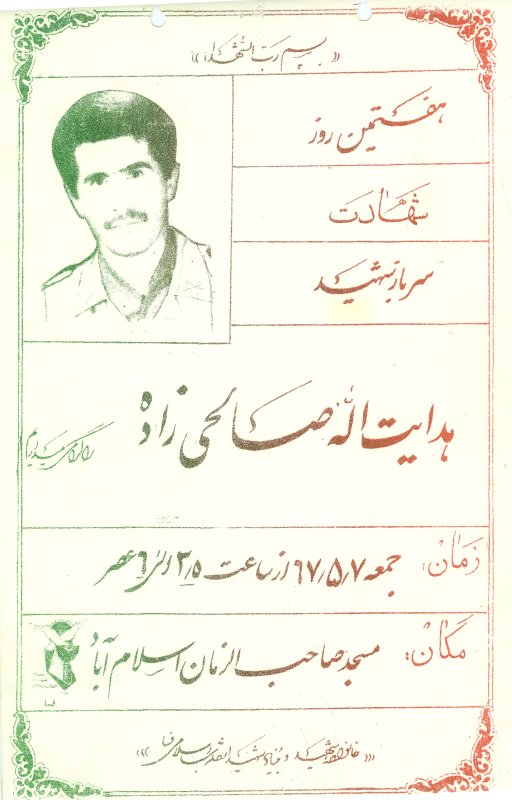 «بسم رب الشهداء»
هفتمین روز
شهادت
سرباز شهید
هدایت اله صالحی زاده
را گرامی میداریم
زمان: جمعه ۶۷٫۵٫۷ از ساعت ۳٫۵ الی ۶ عصر
مکان: مسجد صاحب الزمان اسلام آباد
«خانواده شهید و بنیاد شهید انقلاب اسلامی فسا»